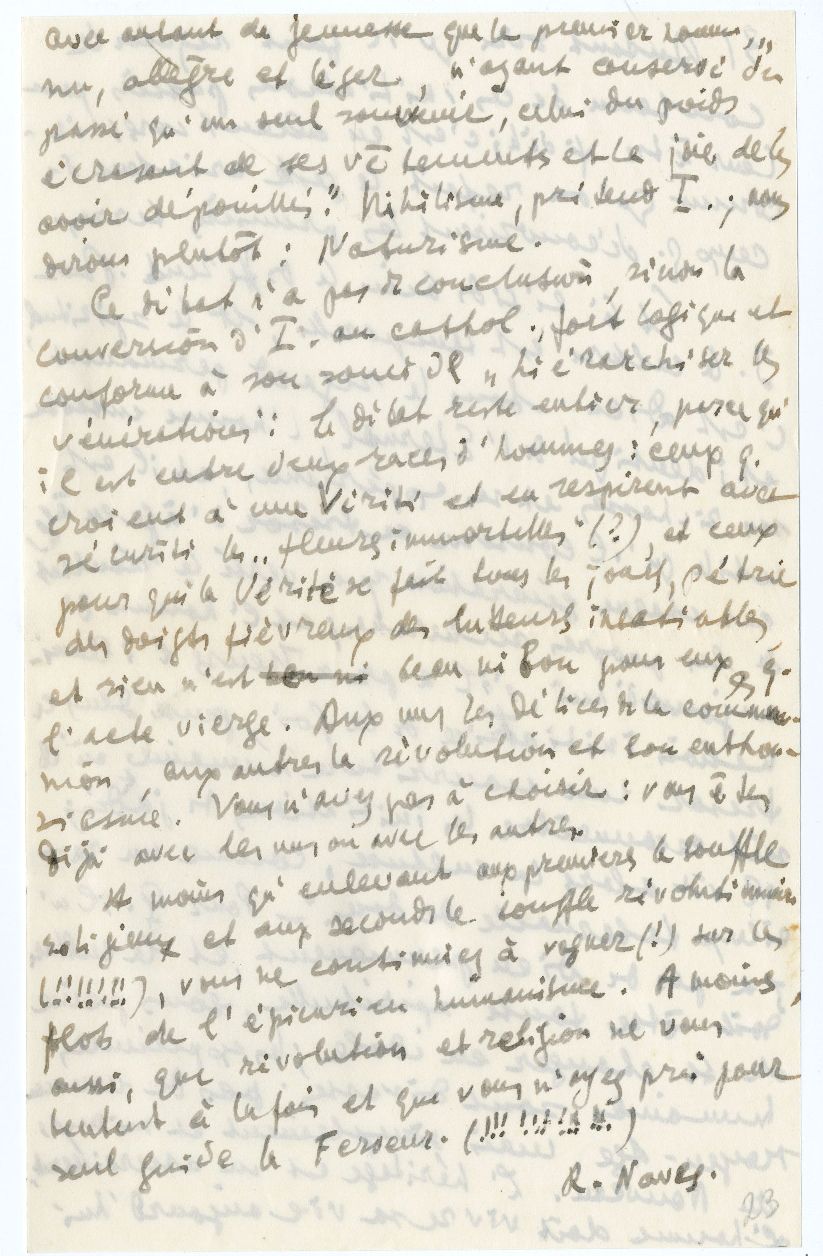 avec autant de jeunesse que le premier homme, „
nu, allègre et léger, n'ayant conservé du
passé qu'un seul souvenir, celui du poids
écrasant de ses vêtements et la joie de les
avoir dépouillés." Nihilisme, prétend I.; nous
dirons plutôt : Naturisme.
Ce débat n'a pas de conclusion, sinon la
conversion d'I. au cathol., fort logique et
conforme à son souci de „hiérarchiser les
vénérations": le débat reste entier, parce qu'
il est entre deux races d'hommes : ceux q.
croient à une Vérité et en respirent avec
sécurité les „fleurs immortelles" (?), et ceux
pour qui la Vérité se fait tous les jours, pétrie
des doigts fiévreux des lutteurs insatiables,
et rien n'est beau ni bon pour eux q.
l'acte vierge. Aux uns les délices de la commu-
nion, aux autres la révolution et son enthou-
siasme. Vous n'avez pas à choisir : vous êtes
déjà avec les uns ou avec les autres.
A moins qu'enlevant aux premiers le souffle
religieux et aux seconds le souffle révolutionnaire
(!!!!!!!), vous ne continuiez à voguer (!) sur les
flots de l'épicurien humanisme. A moins,
aussi, que révolution et religion ne vous
tentent à la fois et que vous n'ayez pris pour
seul guide la Ferveur. (!!! !!! !! !!)
R. Naves.
23